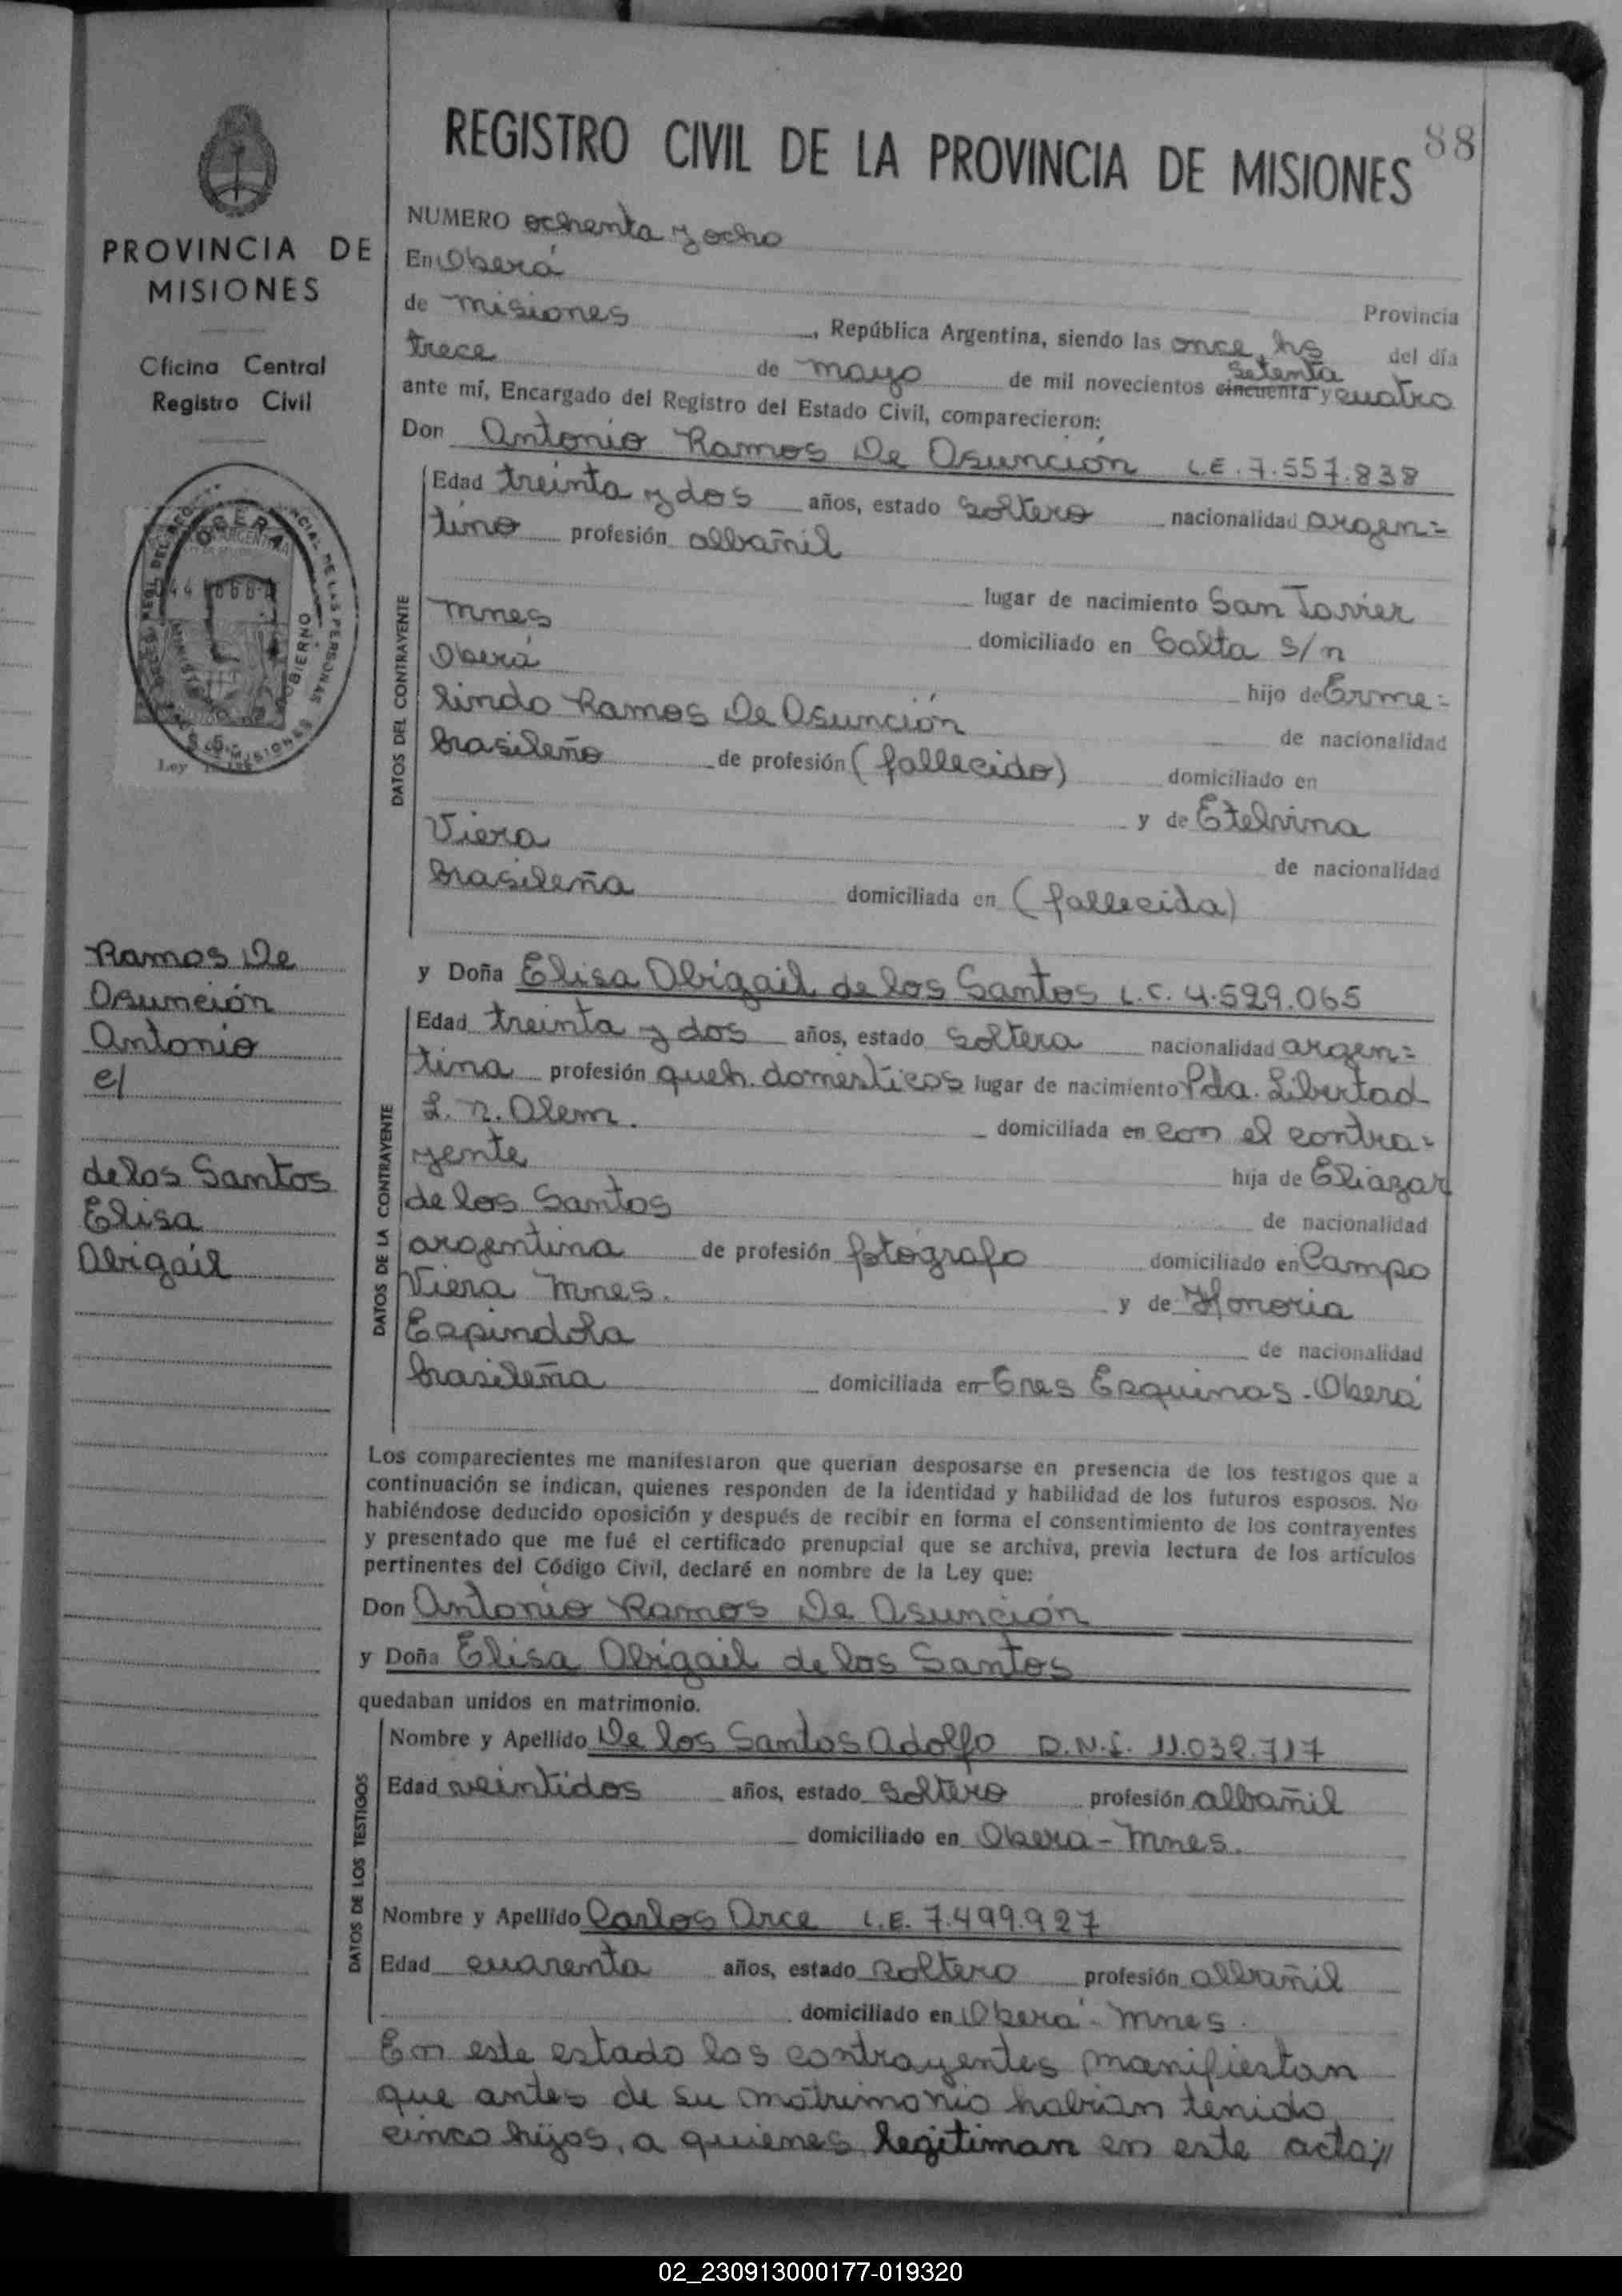 88
REGISTRO CIVIL DE LA PROVINCIA DE MISIONES
PROVINCIA DE
MISIONES
Oficina Central
Registro Civil
OBERA
Ley
Ramos De
Asunción
Antonio
c/
de los Santos
Elisa
Abigail
NUMERO ochenta y ocho
En Oberá Provincia
de Misiones, República Argentina, siendo las once hs del día
trece de mayo de mil novecientos cincuenta setenta y cuatro
ante mí, Encargado del Registro del Estado Civil, comparecieron:
Don Antonio Ramos De Asunción L.E. 7.557.838
DATOS DEL CONTRAYENTE
Edad treinta y dos años, estado soltero nacionalidad argen=
tino profesión albañil
lugar de nacimiento San Javier
Mnes domiciliado en Salta s/n
Oberá hijo de Erme=
lindo Ramos De Asunción de nacionalidad
brasileño de profesión (fallecido) domiciliado en
y de Etelvina
Viera de nacionalidad
brasileña domiciliada en (fallecida)
y Doña Elisa Abigail de los Santos L.C. 4.529.065
DATOS DE LA CONTRAYENTE
Edad treinta y dos años, estado soltera nacionalidad argen=
tina profesión queh. domésticos lugar de nacimiento Pda. Libertad
L. N. Alem. domiciliada en con el contra=
yente hija de Eliazar
de los Santos de nacionalidad
argentina de profesión fotógrafo domiciliado en Campo
Viera Mnes. y de Honoria
Espindola de nacionalidad
brasileña domiciliada en Tres Esquinas - Oberá
Los comparecientes me manifestaron que querían desposarse en presencia de los testigos que a
continuación se indican, quienes responden de la identidad y habilidad de los futuros esposos. No
habiéndose deducido oposición y después de recibir en forma el consentimiento de los contrayentes
y presentado que me fué el certificado prenupcial que se archiva, previa lectura de los artículos
pertinentes del Código Civil, declaré en nombre de la Ley que:
Don Antonio Ramos De Asunción
y Doña Elisa Abigail de los Santos
quedaban unidos en matrimonio.
DATOS DE LOS TESTIGOS
Nombre y Apellido De los Santos Adolfo D.N.I. 11.032.717
Edad veintidos años, estado soltero profesión albañil
domiciliado en Obera - Mnes.
Nombre y Apellido Carlos Arce L.E. 7.499.927
Edad cuarenta años, estado soltero profesión albañil
domiciliado en Oberá - Mnes.
En este estado los contrayentes manifiestan
que antes de su matrimonio habían tenido
cinco hijos, a quienes legitiman en este acto;//
02_230913000177-019320